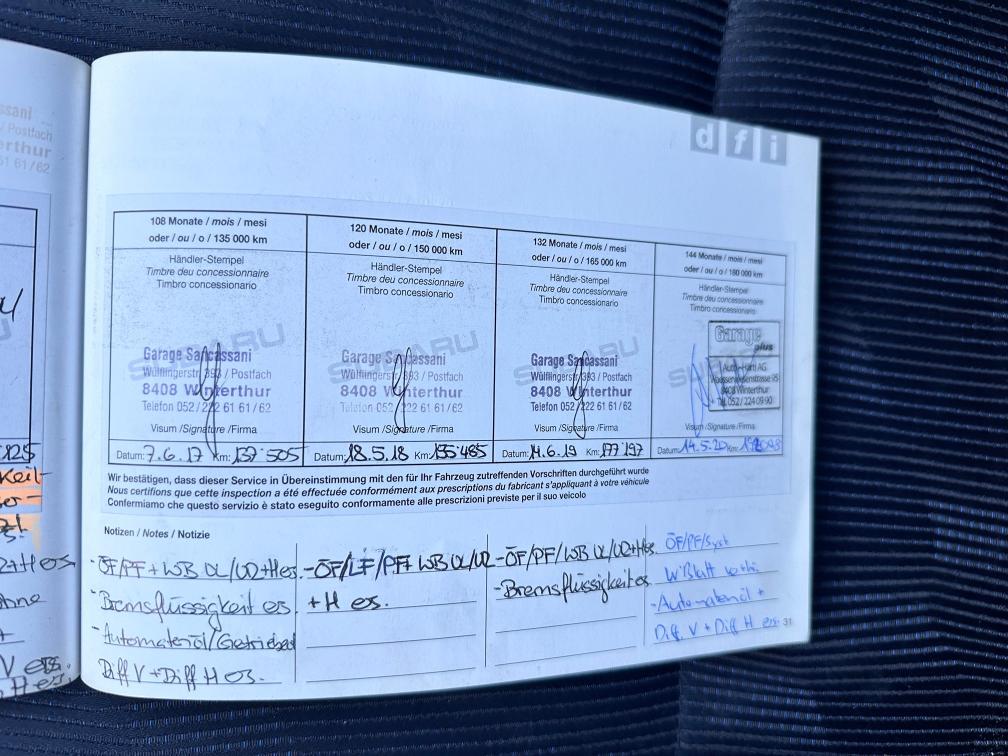 ssani
/ Postfach
erthur
61 61/62
d f i
108 Monate / mois / mesi
oder / ou / o / 135 000 km
Händler-Stempel
Timbre deu concessionnaire
Timbro concessionario
SUBARU
Garage Sancassani
Wülflingerstr. 393 / Postfach
8408 Winterthur
Telefon 052 / 222 61 61 / 62
Visum /Signature /Firma
Datum: 7.6.17 Km: 137'505
120 Monate / mois / mesi
oder / ou / o / 150 000 km
Händler-Stempel
Timbre deu concessionnaire
Timbro concessionario
SUBARU
Garage Sancassani
Wülflingerstr. 393 / Postfach
8408 Winterthur
Telefon 052 / 222 61 61 / 62
Visum /Signature /Firma
Datum: 18.5.18 Km: 155'485
132 Monate / mois / mesi
oder / ou / o / 165 000 km
Händler-Stempel
Timbre deu concessionnaire
Timbro concessionario
SUBARU
Garage Sancassani
Wülflingerstr. 393 / Postfach
8408 Winterthur
Telefon 052 / 222 61 61 / 62
Visum /Signature /Firma
Datum: 14.6.19 Km: 177'197
144 Monate / mois / mesi
oder / ou / o / 180 000 km
Händler-Stempel
Timbre deu concessionnaire
Timbro concessionario
Garage
plus
Auto-Hutti AG
8408 Winterthur
Tel. 052 / 224 09 90
Visum /Signature /Firma
Datum: 14.5.20 Km:
Wir bestätigen, dass dieser Service in Übereinstimmung mit den für Ihr Fahrzeug zutreffenden Vorschriften durchgeführt wurde
Nous certifions que cette inspection a été effectuée conformément aux prescriptions du fabricant s'appliquant à votre véhicule
Confermiamo che questo servizio è stato eseguito conformemente alle prescrizioni previste per il suo veicolo
Notizen / Notes / Notizie
- ÖF/PF + WB UL/UR+H es.
- Bremsflüssigkeit es
- Automatenöl/Getriebeöl
Diff V + Diff H es.
- ÖF/LF/PF+ WB UL/UR
+ H es.
- ÖF/PF/WB UL/UR+H es.
- Bremsflüssigkeit es
ÖF/PF/Syst
- Automatenöl +
Diff. V + Diff H ers.
31